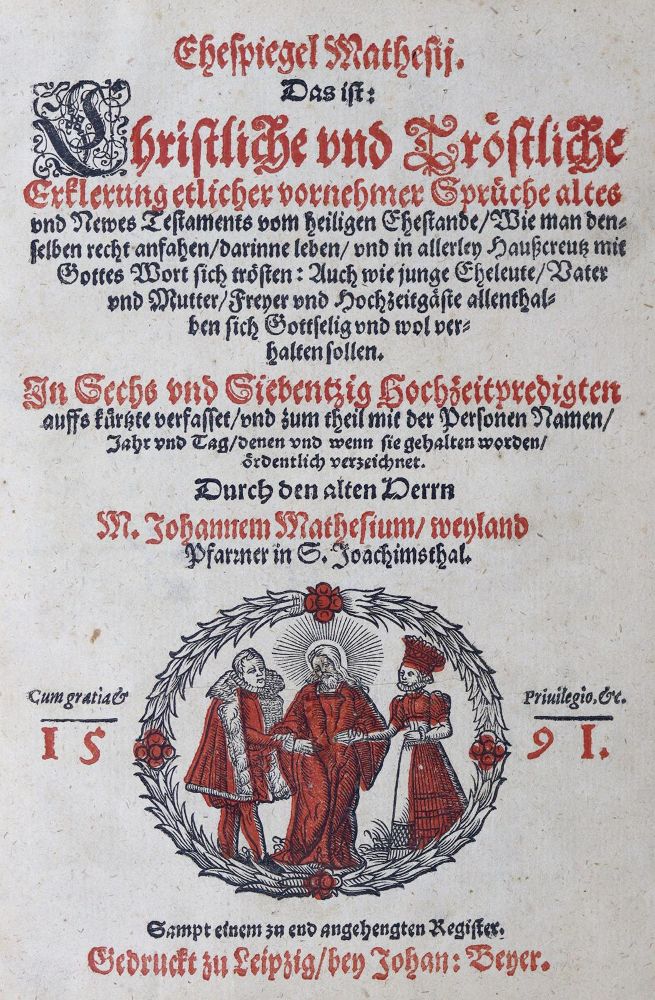 Ehespiegel Mathesij.
Das ist:
Christliche vnd Tröstliche
Erklerung etlicher vornehmer Sprüche altes
vnd Newes Testaments vom heiligen Ehestande/Wie man den-
selben recht anfahen/darinne leben/vnd in allerley Haußcreutz mit
Gottes Wort sich trösten: Auch wie junge Eheleute/Vater
vnd Mutter/Freyer vnd Hochzeitgäste allenthal-
ben sich Gottselig vnd wol ver-
halten sollen.
In Sechs vnd Siebentzig Hochzeitpredigten
auffs kürtzte verfasset/vnd zum theil mit der Personen Namen/
Jahr vnd Tag/denen vnd wenn sie gehalten worden/
ördentlich verzeichnet.
Durch den alten Herrn
M. Johannem Mathesium/weyland
Pfarrner in S. Joachimsthal.
Cum gratia & Priuilegio, &c.
1591.
Sampt einem zu end angehengten Register.
Gedruckt zu Leipzig/bey Johan: Beyer.